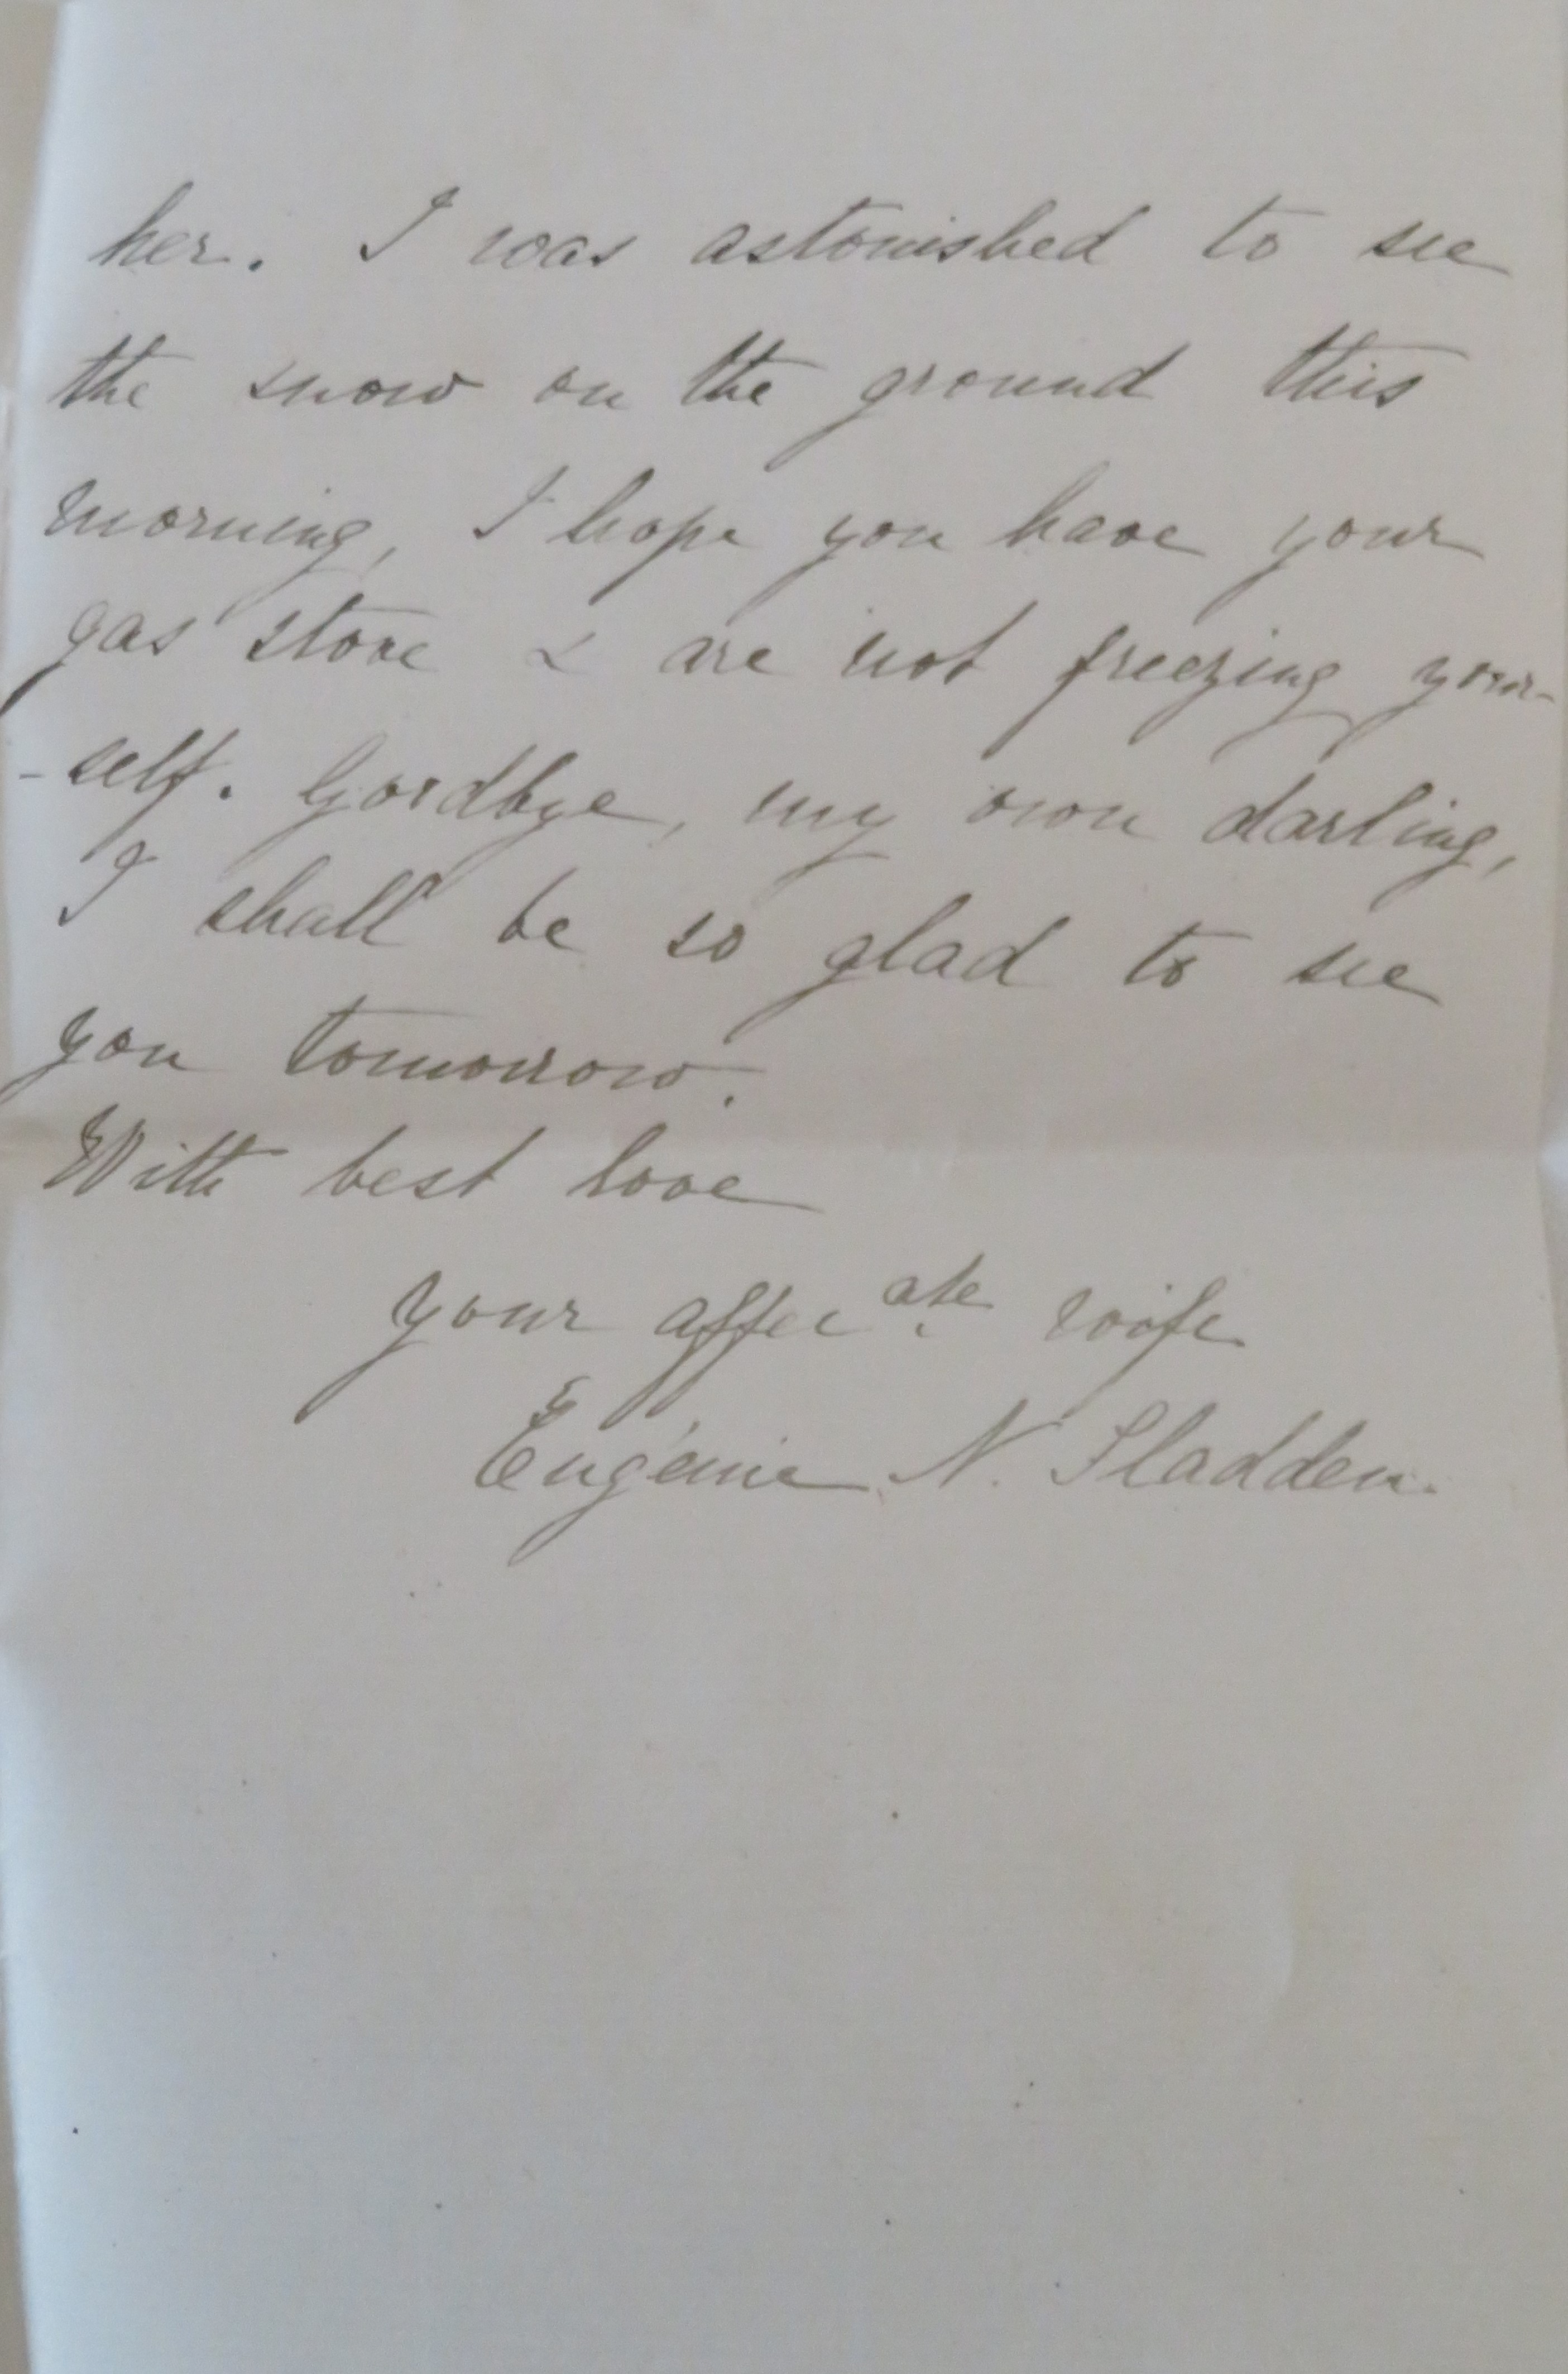 her. I was astonished to see
the snow on the ground this
morning, I hope you have your
gas stove & are not freezing your-
-self. Goodbye, my own darling,
I shall be so glad to see
you tomorrow.
With best love
your affecate. wife
Eugénie N. Sladden.